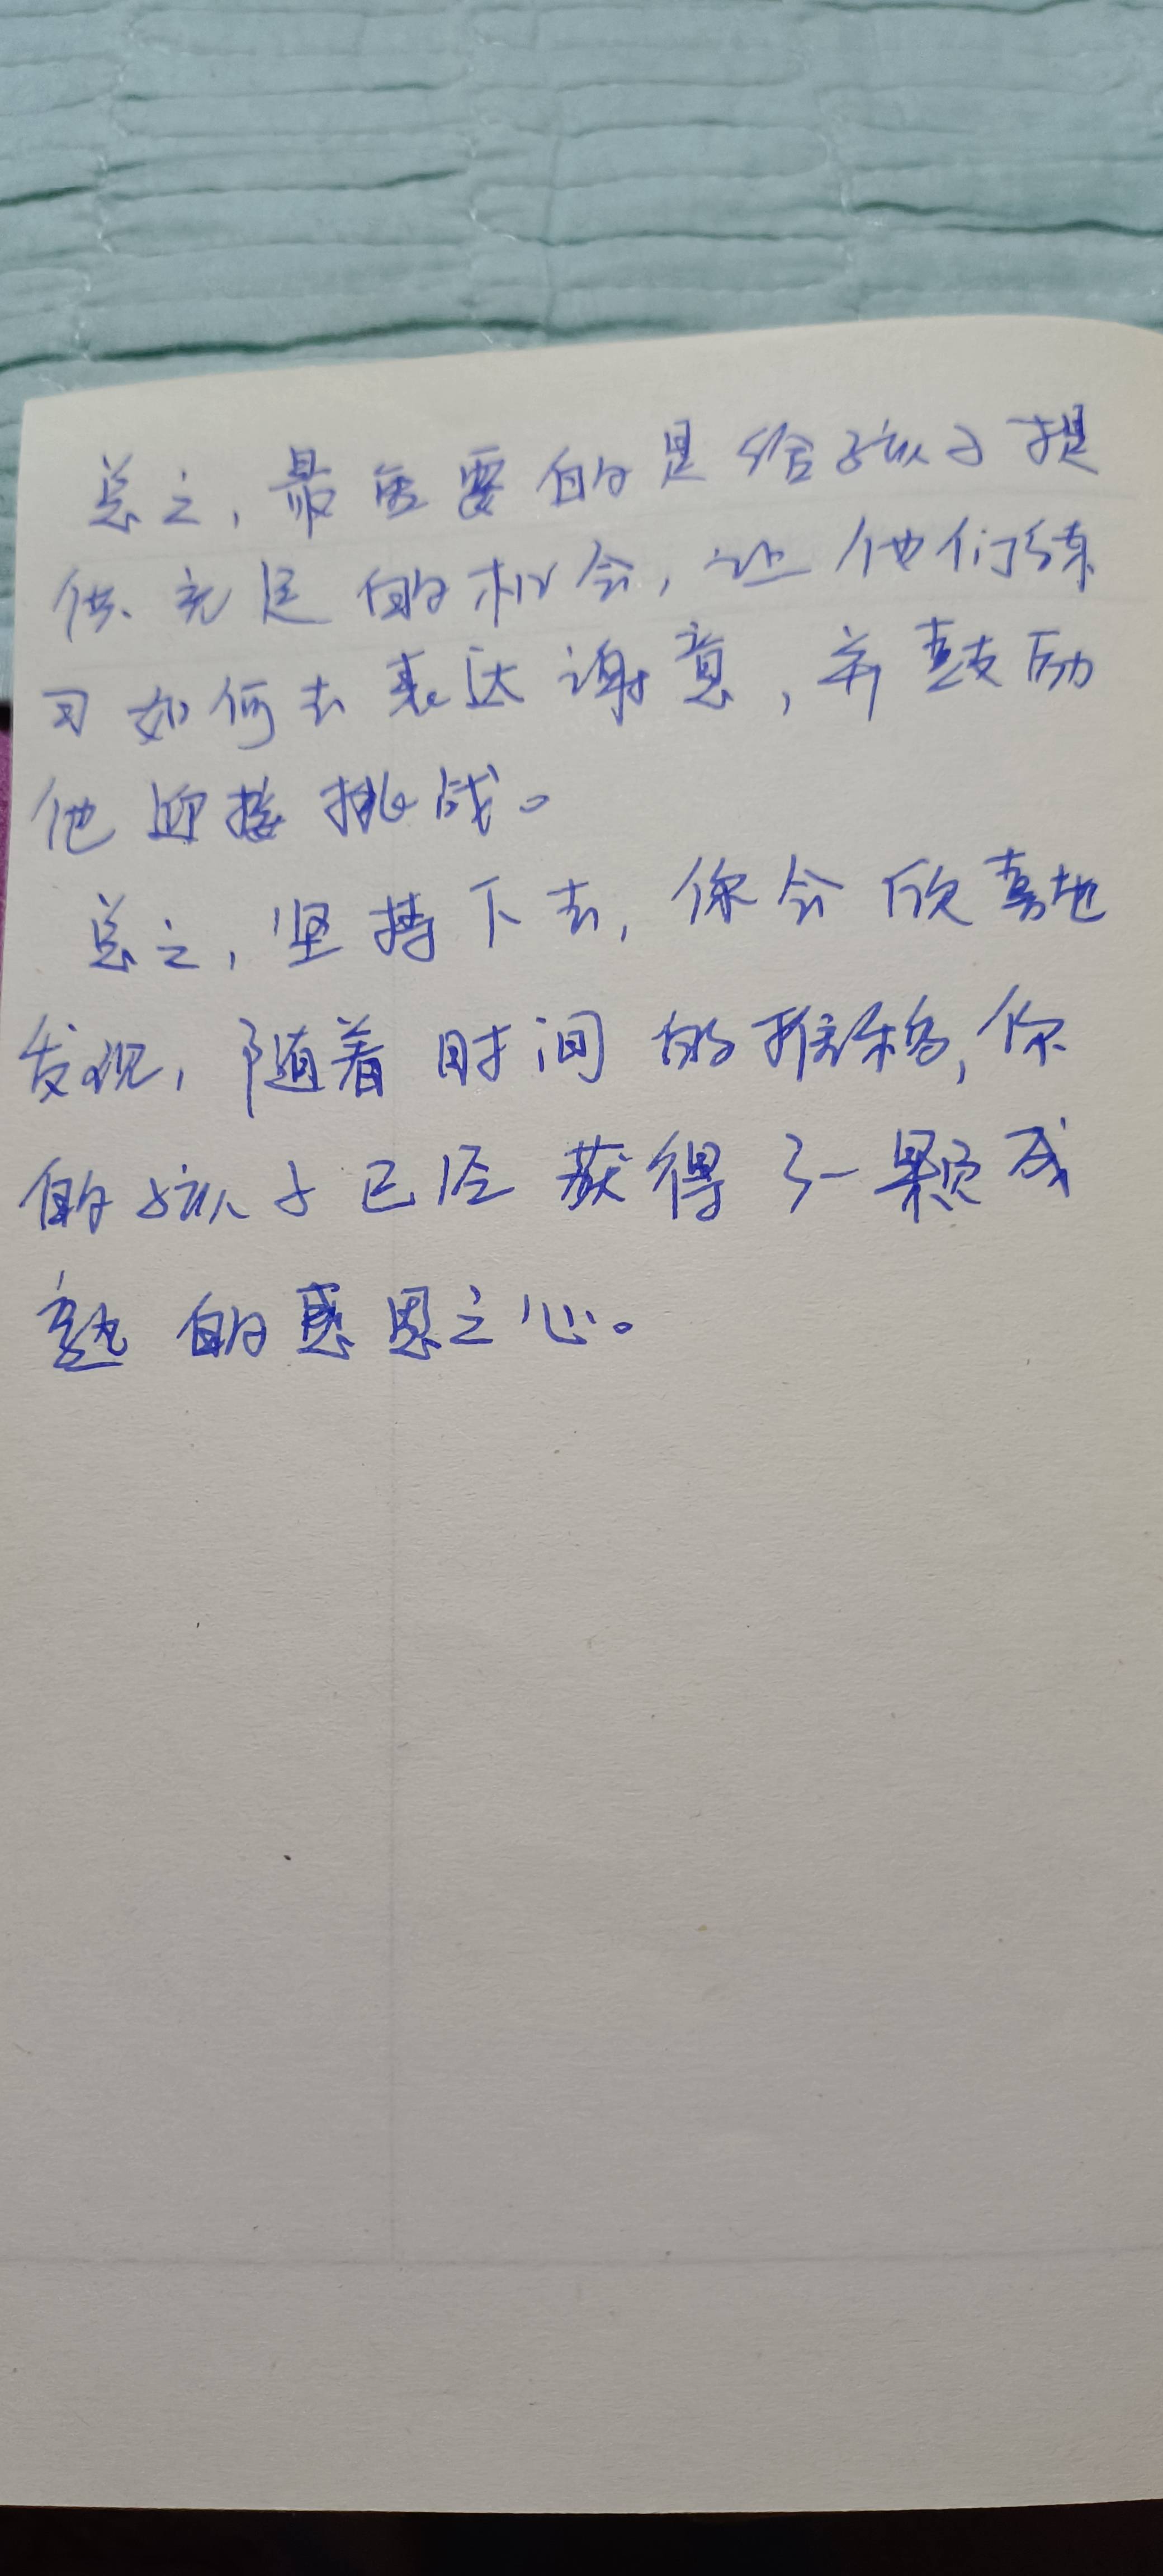 总之,最重要的是给孩子提
供充足的机会,让他们练
习如何去表达谢意,并鼓励
他迎接挑战。
总之,坚持下去,你会欣喜地
发现,随着时间的推移,你
的孩子已经获得了一颗成
熟的感恩之心。